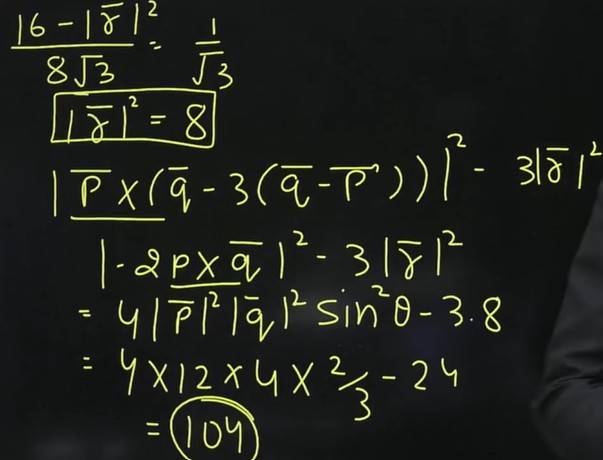 16 - |r̅|² / 8√3 = 1/√3
|r̅|² = 8
|p̅ × (q̅ - 3(q̅ - p̅))|² - 3|r̅|²
|-2p × q̅|² - 3|r̅|²
= 4|p̅|²|q̅|² sin²θ - 3.8
= 4 × 12 × 4 × 2/3 - 24
= 104